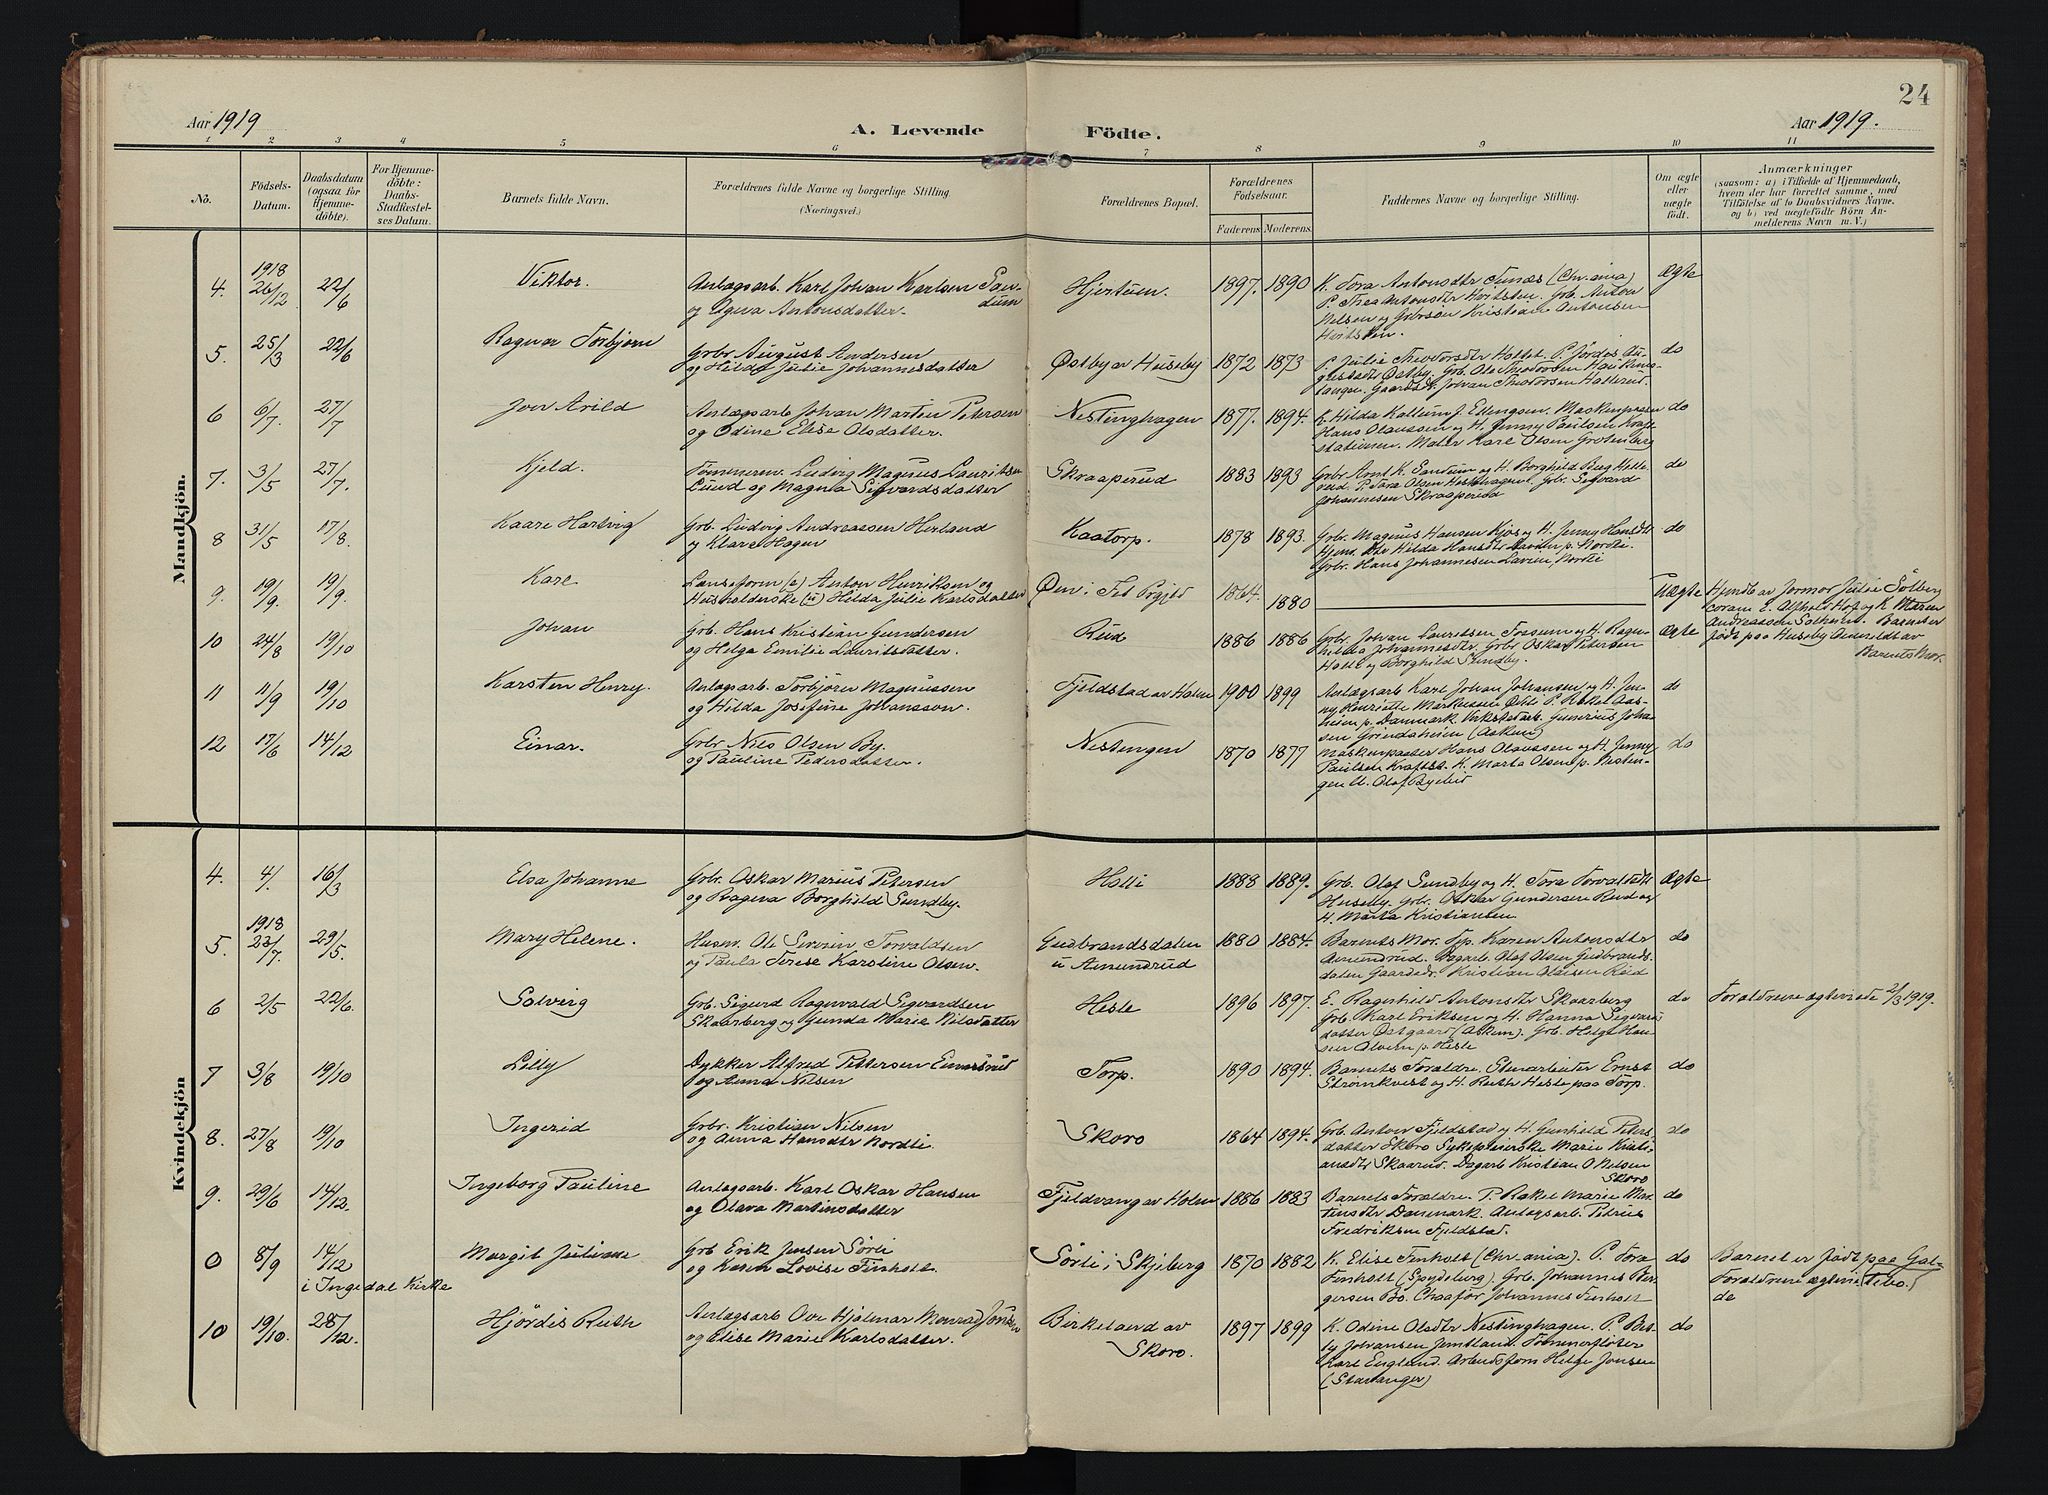 24
Aar 1919
A. Levende Födte.
Aar 1919.
1 2 3 4 5 6 7 8 9 10 11
No.
Födsels-
Datum.
Daabsdatum
(ogsaa for
Hjemme-
döbte).
For Hjemme-
döbte:
Daabs-
Stadfæstel-
ses Datum.
Barnets fulde Navn.
Forældrenes fulde Navne og borgerlige Stilling
(Næringsvei.)
Forældrenes Bopæl.
Forældrenes
Födselsaar.
Faderens Moderens
Faddernes Navne og borgerlige Stilling.
Om ægte
eller
uægte
födt.
Anmærkninger
(saasom: a) i Tilfælde af Hjemmedaab,
hvem der har forrettet samme, med
Tilföielse af to Daabsvidners Navne,
og b) ved uægtefödte Börn An-
melderens Navn m. V.)
Mandkjön.
4. 1918 26/12 22/6 Viktor.
Anlægsarb. Karl Johan Karlsen
og Antonsdatter.
Hjertum. 1897. 1890
K. Tora Antonsdtr (Chr.ania)
P. Thea Antonsdtr Hvitsten. Grb. Anton
Nilsen og Grbrsøn Kristian Antonsen
Hvitsten.
Ægte
5. 25/3 22/6 Ragnar Torbjørn
Grbr. August Andersen
og Hilda Julie Johannesdatter
Østby av Huseby 1872 1873
P. Julie Theodorsdtr P. Jørdis Au-
Østby. Grb. Ole Theodorsen
Johan Theodorsen
do
6 6/7. 27/7 Arild
Anlægsarb Johan Martin Petersen
og Odine Elise Olsdatter.
Nestinghagen 1877. 1894.
K. Hilda
Hans Olaussen og H. Jenny Paulsen Kraft-
stationen. Maler Karl Olsen
do
7. 3/5 27/7. Kjeld.
Ludvig Magnus Lauritsen
Lund og Magna Sigvardsdatter
Skraaperud 1883 1893
Grbr Arnt K. og H. Borghild Berg
P. Tora Olsen Grbr. Sigvard
Johannesen Skraaperud
do
8 31/5 17/8. Kaare Hartvig
Grb. Ludvig Andreassen Herland
og Klara Hagen
Kaatorp. 1878 1893.
Grbr. Magnus Hansen Kjøs og H. Jenny Hansdtr
Hilda Hansdtr p. Nordti.
Grbr. Hans Johannesen Nordti
do
9. 19/9. 19/9. Karl
Løsarb. (e) Anton Henriksen og
Husholderske (u) Hilda Julie Karlsdatter
Øeni Prgjld 1864. 1880
Uægte
Hjmdbt av Jormor Julie Solberg
coram E. Alfhild Hof og K. Maren
Andreassen Solheim. Barnet er
født paa Huseby Anmeldt av
Barnets Mor.
10 24/8 19/10 Johan
Grb. Hans Kristian Gundersen
og Helga Emilie Lauritsdatter.
Rud 1886 1886
Grbr. Johan Lauritsen og H. Ragn-
hilda Johannesdtr. Grbr Oskar Petersen
Holli og Borghild Sundby.
Ægte
11 11/9 19/10 Karsten Henry.
Anlægsarb. Torbjørn Magnussen
og Hilda Josefine Johansson.
Fjeldstad av Holm 1900 1899
Anlægsarb Karl Johan Johansen og H. Jen-
ny Henriette Markussen P. Rakel
p. Danmark. Gunerius Joha-
sen Grindaheim (Askim)
do
12 17/6 14/12 Einar.
Grbr. Nils Olsen By.
og Pauline Pedersdatter.
Nestingen 1870 1877
Maskinpasser Hans Olaussen og H. Jenny
Paulsen Kraftst. K. Marta Olsen p. Nestin-
gen U. Olaf Byelid
do
Kvindekjön
4. 4/. 16/3 Elsa Johanne
Grbr. Oskar Marius Petersen
og Ragna Borghild Sundby.
Holli 1888 1889.
Grb. Olaf Sundby og H. Tora Torvaldsdtr
Huseby. Grbr. Oskar Gundersen Rud og
H. Marta Kristiansen
Ægte
5. 1918 23/7. 29/5. Mary Helene.
Husm. Ole Severin Torvaldsen
og Paula Terese Karoline Olsen.
Gudbrandsdalen
u Amundrud
1880 1884.
Barnets Mor. Karen Antonsdtr
Amundrud. Dagarb. Olaf Olsen Gudbrands-
dalen Gaardbr. Kristian Olausen Rud
do
6 2/5 22/6. Solveig
Grb. Sigurd Ragnvald Sigvardsen
Skaarberg og Gunda Marie Nilsdatter
Hesle 1896 1897.
E. Ragnhild Antonsdtr Skaarberg
Grb. Karl Eriksen og H. Hanna Sigvard-
datter Østgaard (Askim). Grb. Helge Han-
sen p. Hesle
do
Forældrene ægteviede 2/3 1919.
7 3/8 19/10 Lilly
Dykker Alfred Pettersen
og Anna Nilsen
Torp. 1890 1894.
Barnets Forældre. Stenarbeider Ernst
Strømkvist og H. Ruth Hesle paa Torp.
do
8. 27/8 19/10 Ingerid
Grbr. Kristian Nilsen
og Anna Hansdtr Nordti.
Skoro 1864 1894.
Grb. Anton Fjeldstad og H. Gunhild Peters-
datter Skoro Sykepleierske Marie Kristi-
ansdtr Skaarud. Dagarb Kristian O Nilsen
Skoro
do
9. 29/6 14/12. Ingeborg Pauline
Anlægsarb. Karl Oskar Hansen
og Olava Martinsdatter
Fjeldvang av Holm 1886 1883
Barnets Forældre. P. Rakel Marie Mar-
tinsdtr Danmark. Anlægsarb. Petrus
Fredriksen Fjeldstad.
do
0 8/9 14/12
i Ingedal Kirke
Margit Juliane
Grb Erik Jensen Sørli
og Karen Lovise Finholt.
Sørli i Skjeberg 1870 1882
K. Elise Finholt (Chr.ania). P. Tora
Finholt (Spydeberg). Grb. Johannes Ber-
gersen Bø. Chaafør Johannes Finholt
do
Barnet er født paa Gal-
Forældrene ægtevie-
de
10 19/10. 28/12. Hjørdis Ruth
Anlægsarb Ove Hjalmar Monrad Jonsen
og Elise Marie Karlsdatter.
Birkeland av
Skoro.
1897 1899
K. Odine Olsdtr Nestinghagen. P. Bet-
ty Johansen Jemtland. Tømmerfløter
Karl England. Arbeidsform Helge Jonsen
(Stavanger)
do